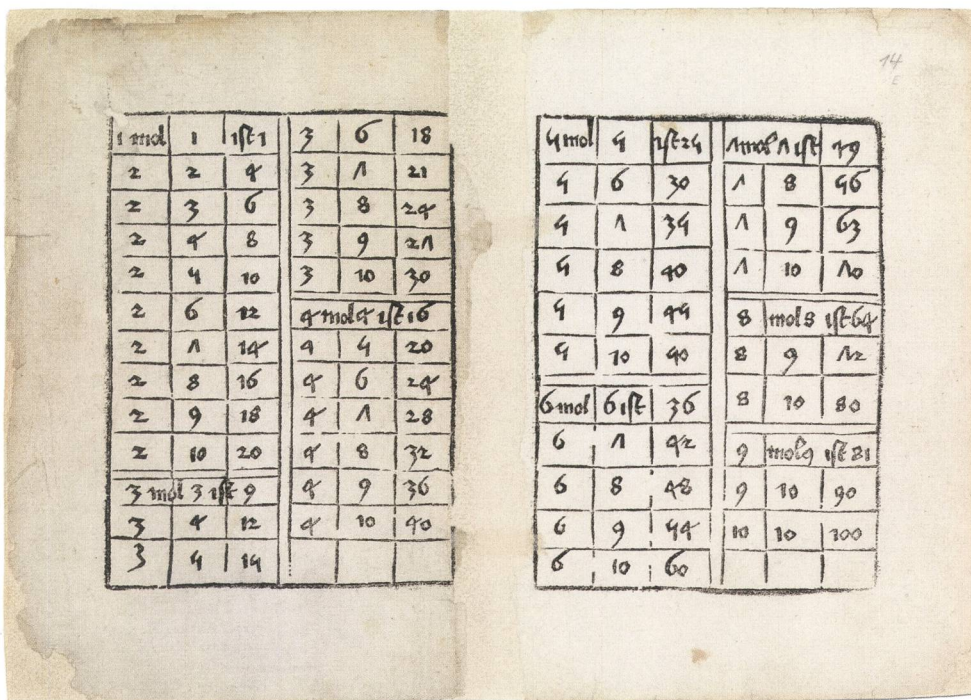 1 mol 1 ist 1
2 2 4
2 3 6
2 4 8
2 5 10
2 6 12
2 7 14
2 8 16
2 9 18
2 10 20
3 mol 3 ist 9
3 4 12
3 5 15
3 6 18
3 7 21
3 8 24
3 9 27
3 10 30
4 mol 4 ist 16
4 5 20
4 6 24
4 7 28
4 8 32
4 9 36
4 10 40
5 mol 5 ist 25
5 6 30
5 7 35
5 8 40
5 9 45
5 10 50
6 mol 6 ist 36
6 7 42
6 8 48
6 9 54
6 10 60
7 mol 7 ist 49
7 8 56
7 9 63
7 10 70
8 mol 8 ist 64
8 9 72
8 10 80
9 mol 9 ist 81
9 10 90
10 10 100
14